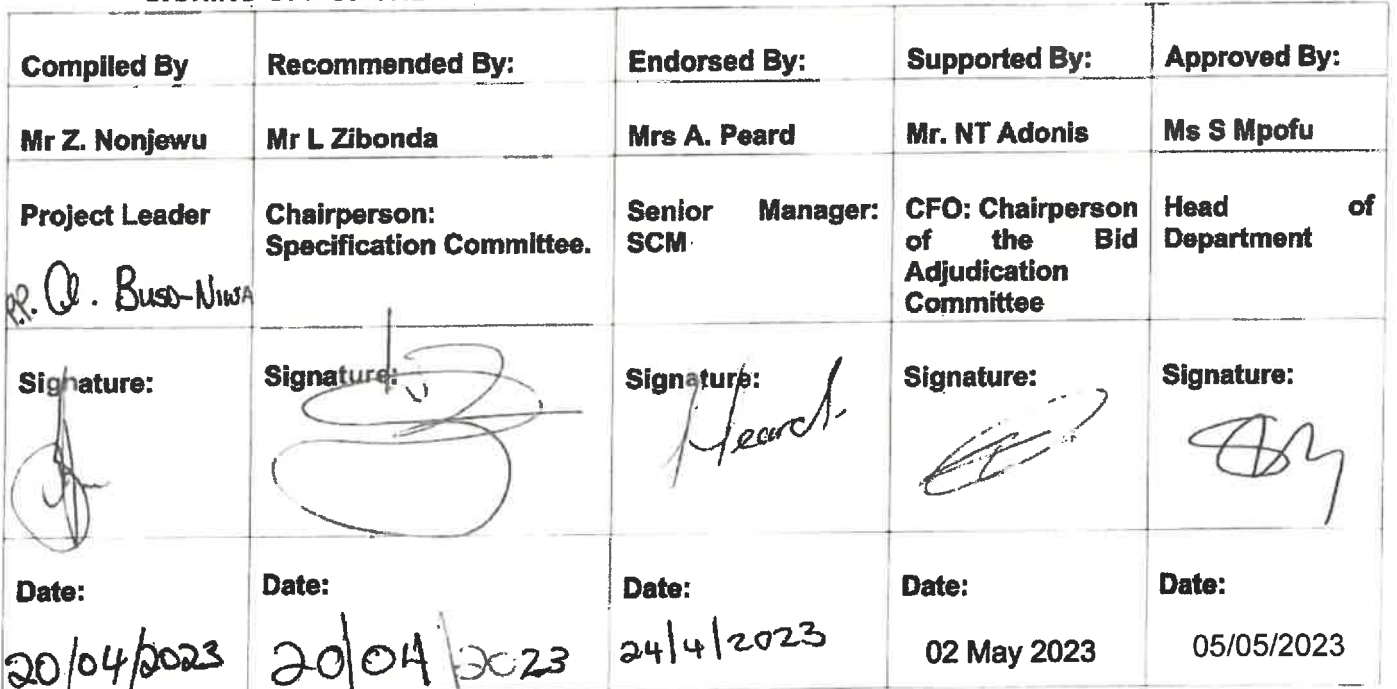 Compiled By
Recommended By:
Endorsed By:
Supported By:
Approved By:
Mr Z. Nonjewu
Mr L Zibonda
Mrs A. Peard
Mr. NT Adonis
Ms S Mpofu
Project Leader
P.P. Q. Buso-Niwa
Chairperson:
Specification Committee.
Senior Manager:
SCM
CFO: Chairperson
of the Bid
Adjudication
Committee
Head of
Department
Signature:
Signature:
Signature:
Peard.
Signature:
Signature:
Date:
Date:
Date:
Date:
Date:
20/04/2023
20/04/2023
24/4/2023
02 May 2023
05/05/2023